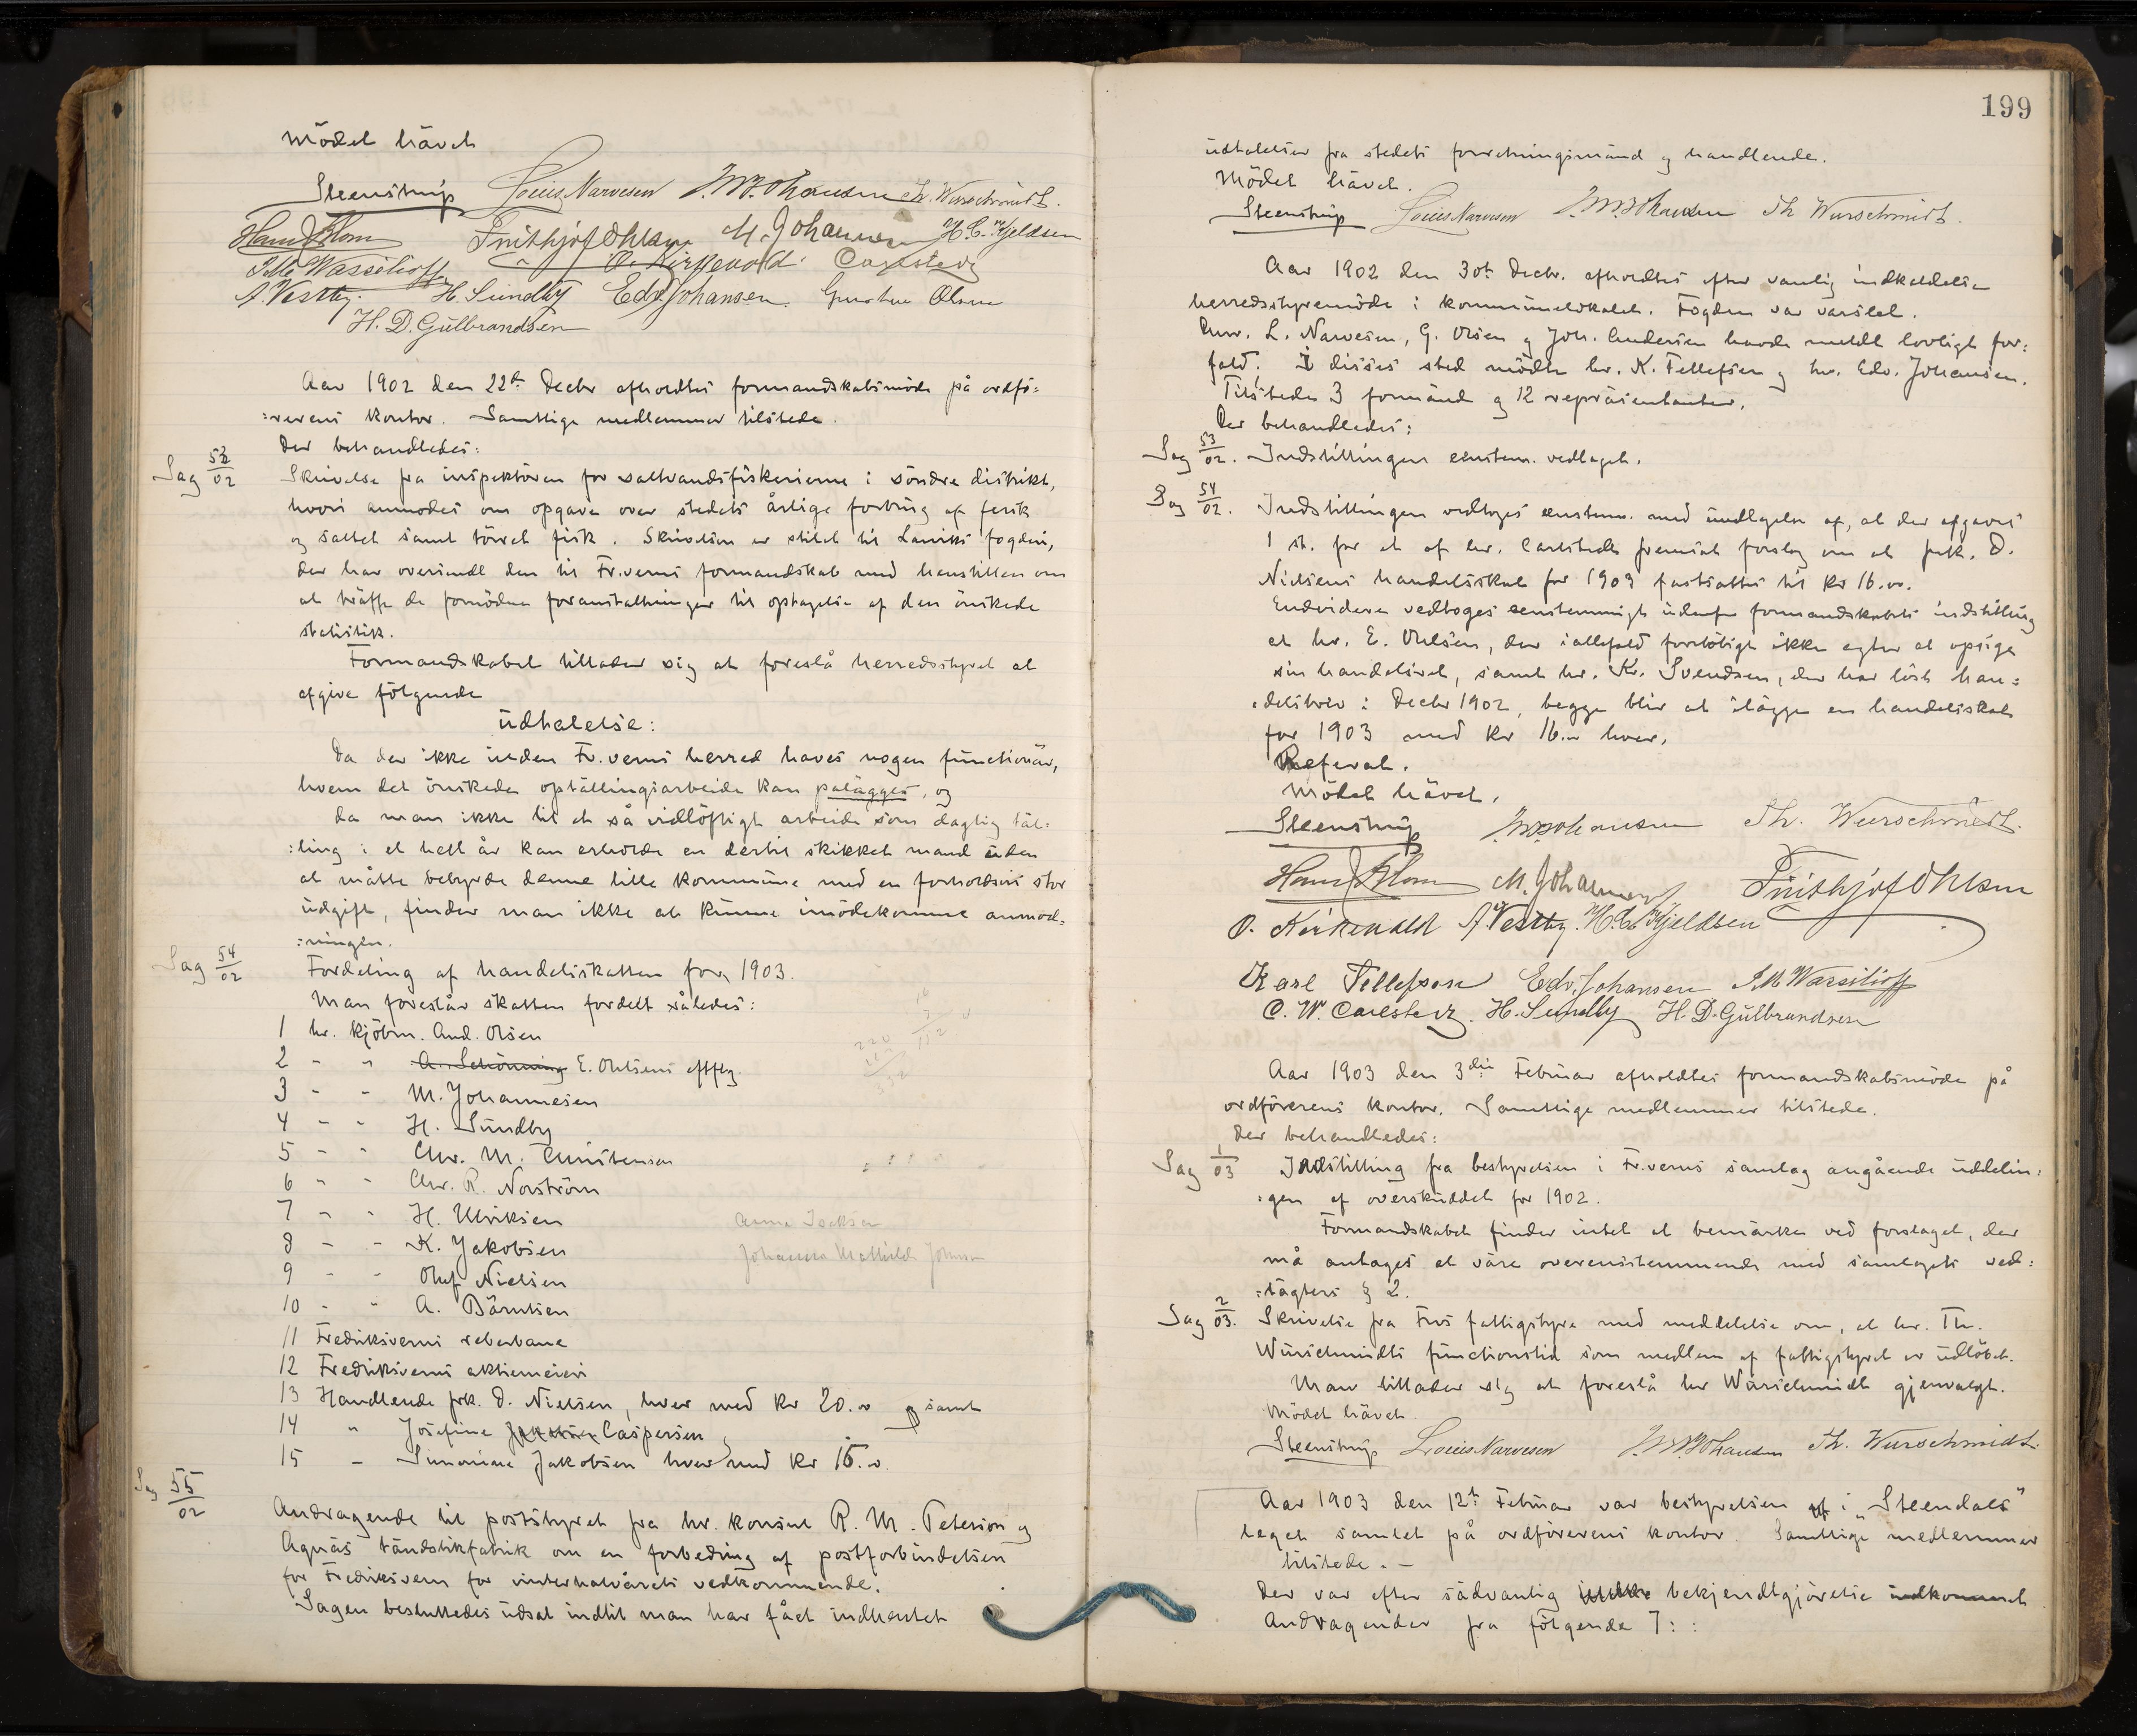 Mödet hävet
Steenstrup Louis Narvesen J. M. Johansen Th. Wurschmidt.
Hans J Blom Frithjof Ohlsen M. Johannesen H. C. Kjeldsen
J. M. Wassilioff O. Kirkevold Carlstedt
A. Vestby. H. Sundby Edv. Johansen. Gustav Olsen
H. D. Gulbrandsen
Aar 1902 den 22de Decbr afholdtes formandskabsmöde på ordfö=
:rerens kontor. Samtlige medlemmer tilstede.
Der behandledes:
Sag 53/02 Skrivelse fra inspektören for saltvandsfiskerierne i söndre distrikt,
hvori anmodes om opgave over stedets årlige forbrug af fersk
og saltet samt törret fisk. Skrivelsen er stilet til Larviks fogderi,
der har oversendt den til Fr.verns formandskab med henstillen om
at träffe de fornödne foranstaltninger til optagelse af den önskede
statistik.
Formandskabet tillader sig at foreslå herredsstyret at
afgive fölgende
udtalelse:
Da der ikke inden Fr.verns herred haves nogen functionär,
hvem det önskede optällingsarbeide kan pålägges, og
da man ikke til et så vidlöftigt arbeide som daglig täl=
:ling i et helt år kan erholde en dertil skikket mand uden
at måtte bebyrde denne lille kommune med en forholdsvis stor
udgift, finder man ikke at kunne imödekomme anmod=
:ningen.
Sag 54/02 Fordeling af handelsskatten for 1903.
Man foreslår skatten fordelt således:
1 hr. kjöbm. And. Olsen
2 - " A. Schönning E. Ohlsens efftlg.
3 - - M. Johannesen
4 - - H. Sundby
5 - - Chr. M. Christensen
6 - - Chr. R. Norström
7 - - H. Ulriksen
8 - - K. Jakobsen
9 - - Oluf Nielsen
10 - - A. Bärntsen
11 Fredriksverns reberbane
12 Fredriksverns aktiemeieri
13 Handlende frk. D. Nielsen, hver med kr 20.00 og samt
14 " Josefine Caspersen
15 - Simonine Jakobsen hver med kr 15.00.
Sag 55/02
Andragende til poststyret fra hr. konsul R. M. Peterson og
Agnäs tändstikfabrik om en forbedring af postforbindelsen
for Fredriksvern for vinterhalvårets vedkommende.
Sagen besluttedes udsat indtil man har fået indhentet
199
udtalelser fra stedets forretningsmänd og handlende.
Mödet hävet.
Steenstrup Louis Narvesen J. M. Johansen Th Wurschmidt.
Aar 1902 den 30te Decbr. afholdtes efter vanlig indkaldelse
herredsstyremöde i kommunelokalet. Fogden var varslet.
Hrr. L. Narvesen, G. Olsen og Joh. Andersen havde meldt lovligt for=
fald. I disses sted mödte hr. K. Tellefsen og hr. Edv. Johansen.
Tilstede 3 formänd og 12 repräsentanter.
Der behandledes:
Sag 53/02. Indstillingen eenstem. vedtaget.
Sag 54/02. Indstillingen vedtoges eenstem. med undtagelse af, at der afgaves
1 st. for et af hr. Carlstedt fremsat forslag om at frk. D.
Nielsens handelsskat for 1903 fastsattes til kr 16.00.
Endvidere vedtoges eenstemmigt udenfor formandskabets indstilling
at hr. E. Ohlsen, der iallefald foreløbigt ikke agter at opsige
sin handelsret, samt hr. Kr. Svendsen, der har löst han=
:delsbrev i Decbr 1902, begge blir at ilägge en handelsskat
for 1903 med kr 16.00 hver.
Referat.
Mödet hävet.
Steenstrup J. M. Johansen Th. Wurschmidt.
Hans J Blom M. Johannesen Frithjof Ohlsen
O. Kirkevold A. Vestby. H. C. Kjeldsen
Karl Tellefsen Edv. Johansen J. M. Wassilioff
C. W. Carlstedt. H. Sundby H. D. Gulbrandsen
Aar 1903 den 3die Februar afholdtes formandskabsmöde på
ordförerens kontor. Samtlige medlemmer tilstede.
Der behandledes:
Sag 1/03 Indstilling fra bestyrelsen i Fr.verns samlag angående uddelin=
:gen af overskuddet for 1902.
Formandskabet finder intet at bemärke ved forslaget, der
må antages at väre overensstemmende med samlagets ved=
:tägters § 2.
Sag 2/03. Skrivelse fra Frvs fattigstyre med meddelelse om, at hr. Th.
Wurschmidts functionstid som medlem af fattigstyret er udlöbet.
Man tillader sig at foreslå hr Wurschmidt gjenvalgt.
Mödet hävet.
Steenstrup Louis Narvesen J. M. Johansen Th. Wurschmidt.
Aar 1903 den 12te Februar var bestyrelsen af i "Steendals"
leget samlet på ordförerens kontor. Samtlige medlemmer
tilstede. -
Der var efter sädvanlig bekjendtgjörelse indkommet
Andragender fra fölgende 7: :